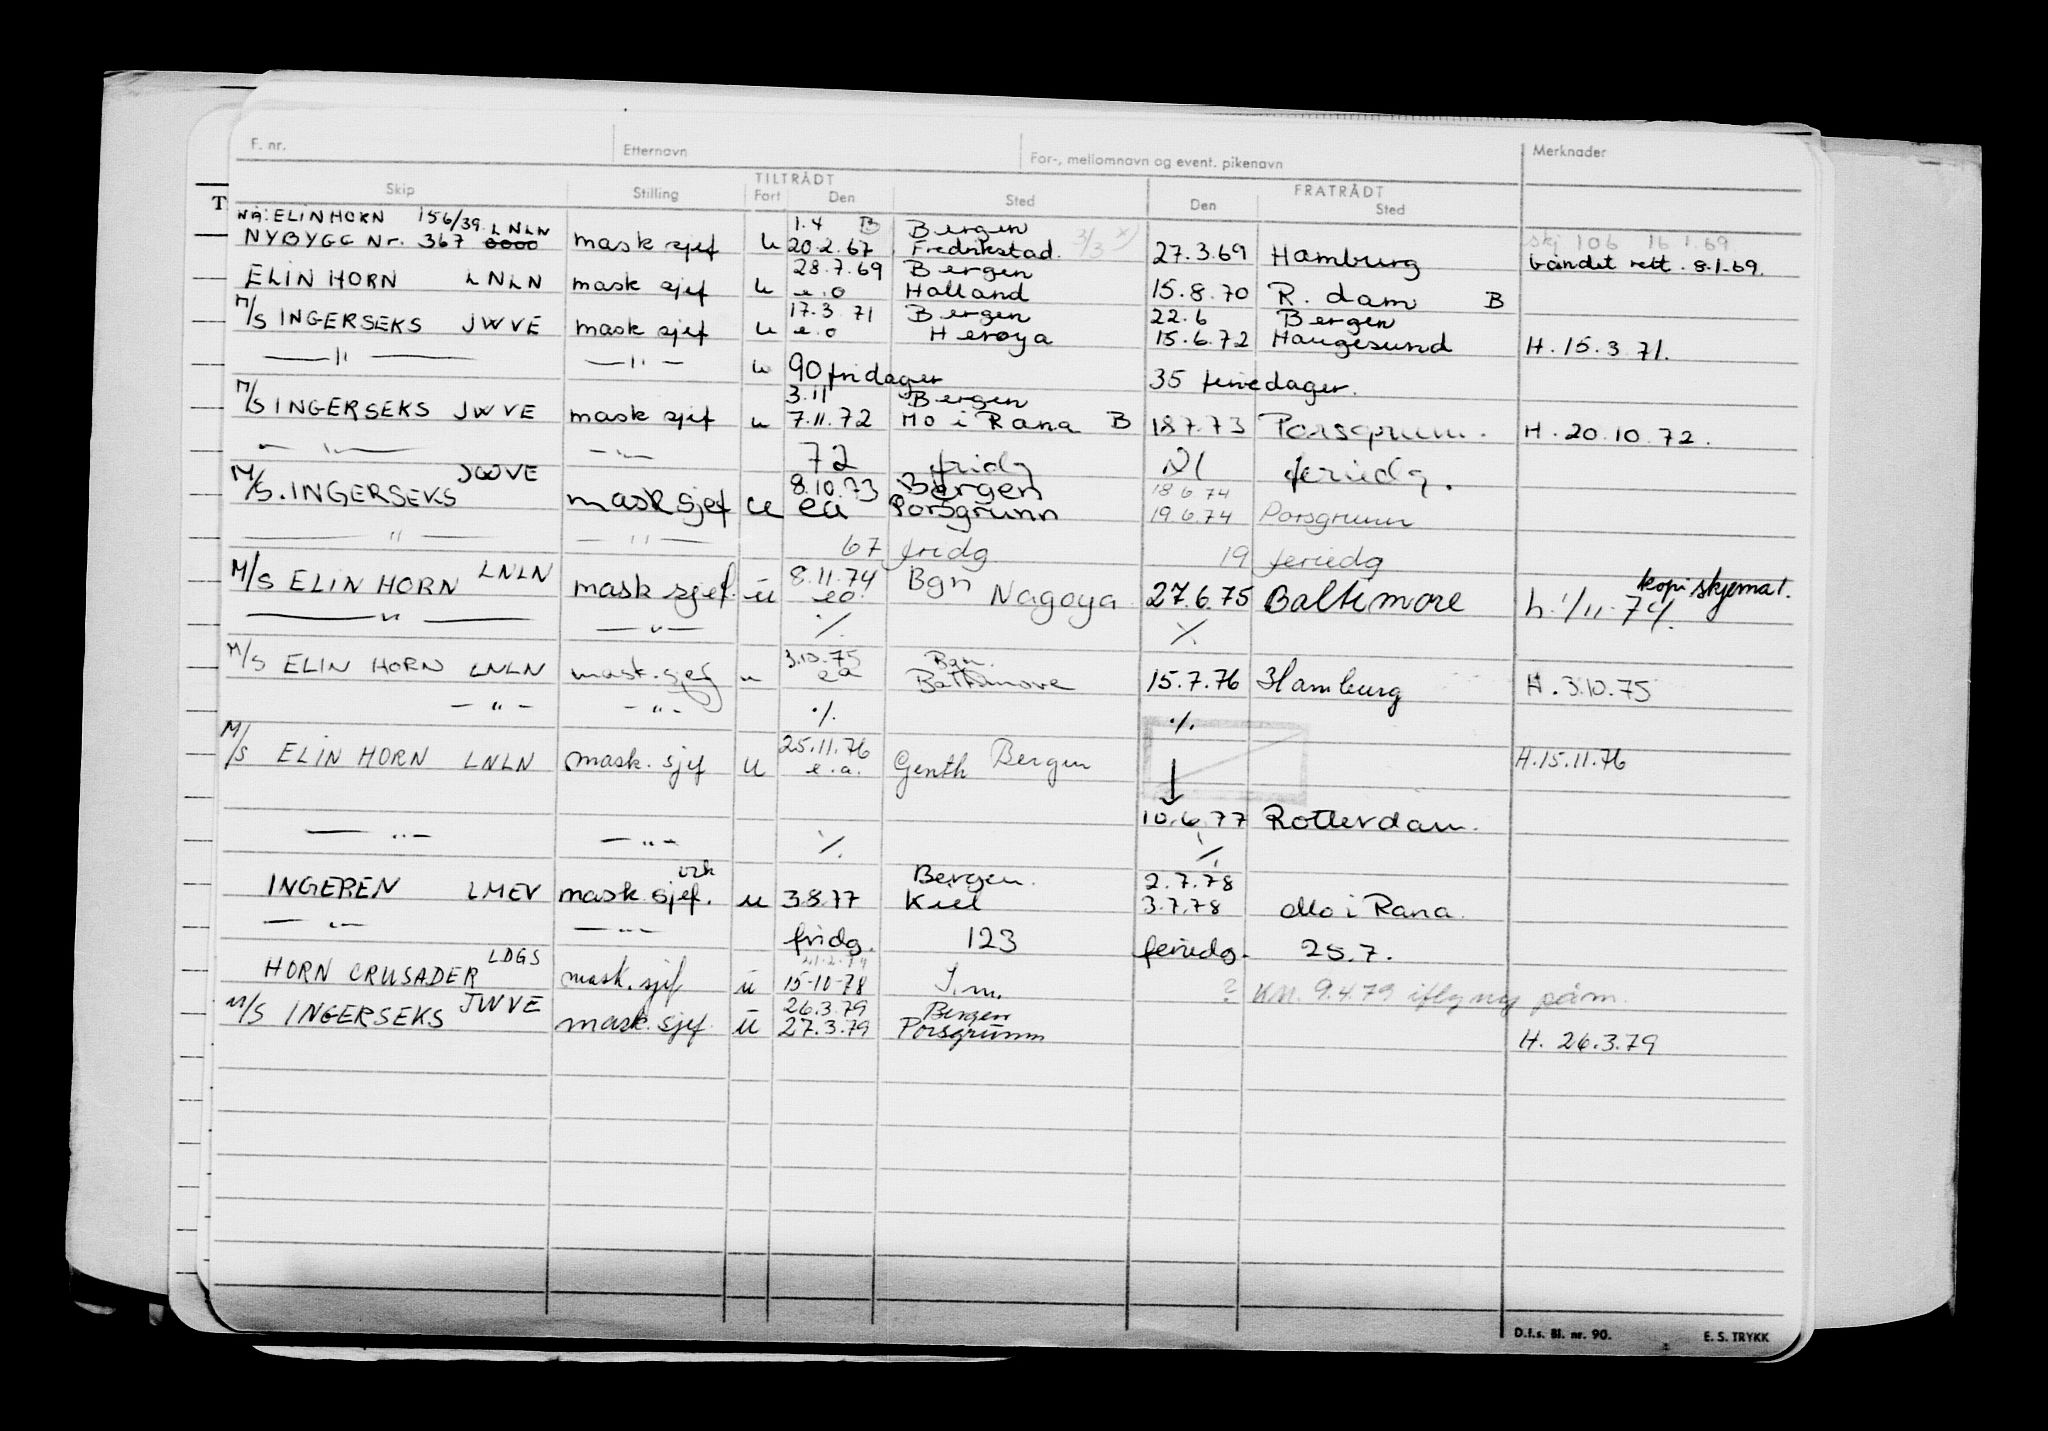 F. nr. Etternavn For-, mellomnavn og event. pikenavn Merknader
TILTRÅDT FRATRÅDT
Skip Stilling Fart Den Sted Den Sted
T
NÅ: ELIN HORN 156/39 LNLN 1.4 B Bergen
NYBYGG Nr. 367 mask sjef u 20.2.67 Fredrikstad 3/3 x) 27.3.69 Hamburg skj 106 16.1.69
båndet rett. 8.1.69.
28.7.69 Bergen
ELIN HORN LNLN mask sjef u e.o Halland 15.8.70 R.dam B
17.3 71 Bergen 22.6 Bergen
M/S INGERSEKS JWVE mask sjef u e.o Herøya 15.6.72 Haugesund H. 15.3 71.
— " — — " — u 90 fridager 35 feriedager.
3.11 Bergen
M/S INGERSEKS JWVE mask sjef u 7.11.72 Mo i Rana B 18.7.73 Porsgrunn. H. 20.10.72.
— " — — " — 72 fridg 21 feriedg.
JWVE 8.10.73 Bergen 18 6 74
M/S. INGERSEKS mask sjef u ea Porsgrunn 19.6.74 Porsgrunn
— " — — " — 67 fridg 19 feriedg
LNLN 8.11.74 Bgn kopi skjema t.
M/S ELIN HORN mask sjef. u eo. Nagoya 27.6.75 Baltimore h. 1/11-74.
— " — — " — ./. ./.
3.10.75 Bgn.
M/S ELIN HORN LNLN mask. sjef u ea Baltimore 15.7.76 Hamburg H. 3.10.75
— " — — " — ./. ./.
25.11.76 Bergen
M/S ELIN HORN LNLN mask. sjef u e.a. Genth H.15.11.76
10.6.77 Rotterdam.
— " — — " — ./. ./.
Bergen. 2.7.78
INGEREN LMEV mask sjef. u 3.8.77 Kiel 3.7.78 Mo i Rana.
— " — — " — fridg. 123 feriedg. 25.7.
LDGS
HORN CRUSADER mask. sjef u 15-10-78 I.m. ? KM. 9.4.79 iflg ny påm.
JWVE 26.3.79 Bergen
M/S INGERSEKS mask. sjef. u 27.3.79 Porsgrunn H. 26.3.79
D.f.s. Bl. nr. 90. E. S. TRYKK